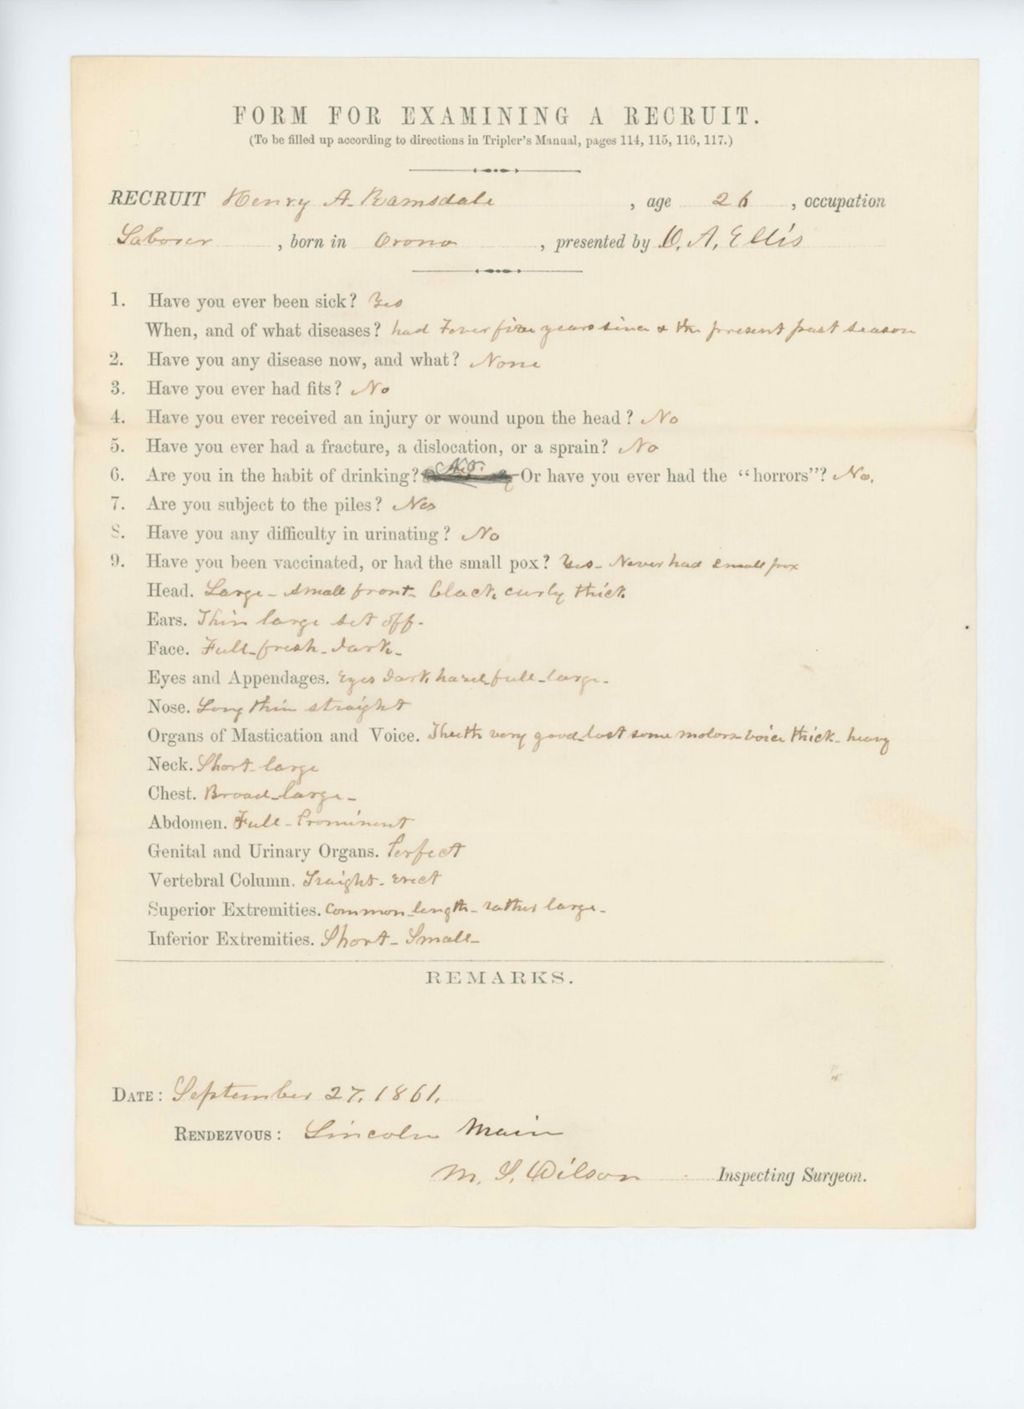 FORM FOR EXAMINING A RECRUIT.
(To be filled up according to directions in Tripler's Manual, pages 114, 115, 116, 117.)
RECRUIT Henry A. Ramsdale, age 26, occupation
Laborer, born in Orono, presented by O. A. Ellis
1. Have you ever been sick? Yes
When, and of what diseases? had Fever five years since & the present past season
2. Have you any disease now, and what? None
3. Have you ever had fits? No
4. Have you ever received an injury or wound upon the head? No
5. Have you ever had a fracture, a dislocation, or a sprain? No
6. Are you in the habit of drinking? No. Or have you ever had the "horrors"? No.
7. Are you subject to the piles? Yes
8. Have you any difficulty in urinating? No
9. Have you been vaccinated, or had the small pox? Yes - Never had small pox
Head. Large - small front - black, curly thick
Ears. Thin large set off -
Face. Full - fresh - dark -
Eyes and Appendages. Eyes dark hazel full - large -
Nose. Long thin straight
Organs of Mastication and Voice. Theeth very good - lost some molors - voice thick - heavy
Neck. Short - large
Chest. Broad - large -
Abdomen. Full - Prominent
Genital and Urinary Organs. Perfect
Vertebral Column. Straight - erect
Superior Extremities. Common length - rather large -
Inferior Extremities. Short - Small -
REMARKS.
DATE: September 27, 1861.
RENDEZVOUS: Lincoln Main
M. S. Wilson Inspecting Surgeon.